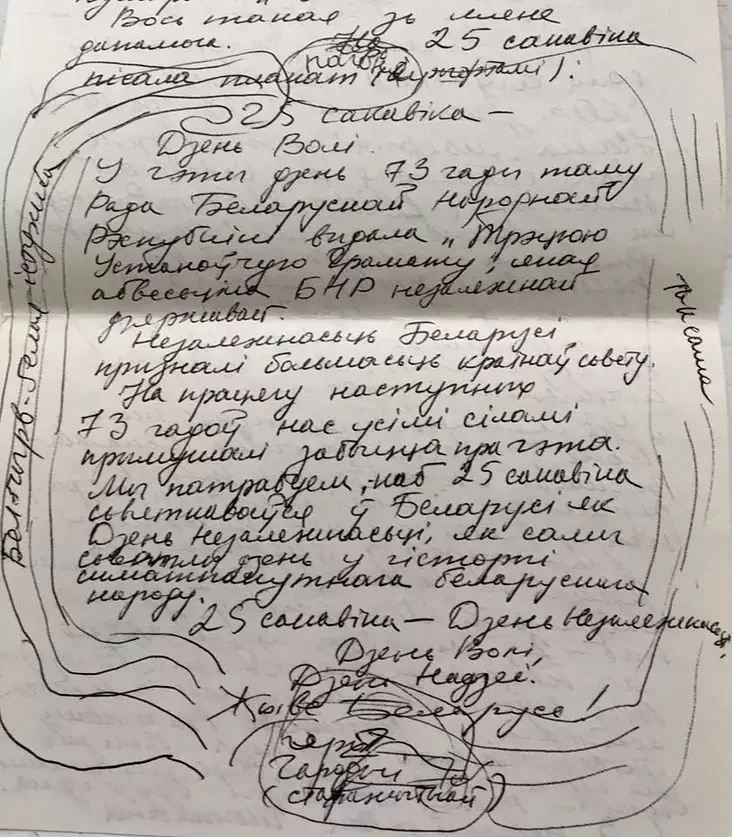 Вось такая зь мяне
дапамога. На 25 сакавіка
пісала плакат
25 сакавіка —
Дзень Волі.
У гэты дзень 73 гады таму
Рада Беларускай Народнай
Рэспублікі выдала „Трэцюю
Устаноўчую Грамату", якая
абвесьціла БНР незалежнай
дзяржавай.
Незалежнасьць Беларусі
прызналі большасьць краінаў сьвету.
На працягу наступных
73 гадоў нас усімі сіламі
прымушалі забыцца пра гэта.
Мы патрабуем, каб 25 сакавіка
сьвяткаваўся ў Беларусі як
Дзень Незалежнасьці, як самы
сьветлы дзень у гісторыі
шматпакутнага беларускага
народу.
25 сакавіка — Дзень Незалежнасьці,
Дзень Волі,
Дзень Надзеі.
Жыве Беларусь!
герб
Пагоні
таксама